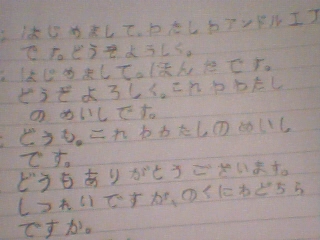 : はじめまして、わたしわアンドルエア
です。どうぞよろしく。
: はじめまして。ほんだです。
どうぞよろしく。これわわたし
のめいしです。
: どうも。これわわたしのめいし
です。
どうもありがとうございます。
しつれいですが、のくにわどちら
ですか。